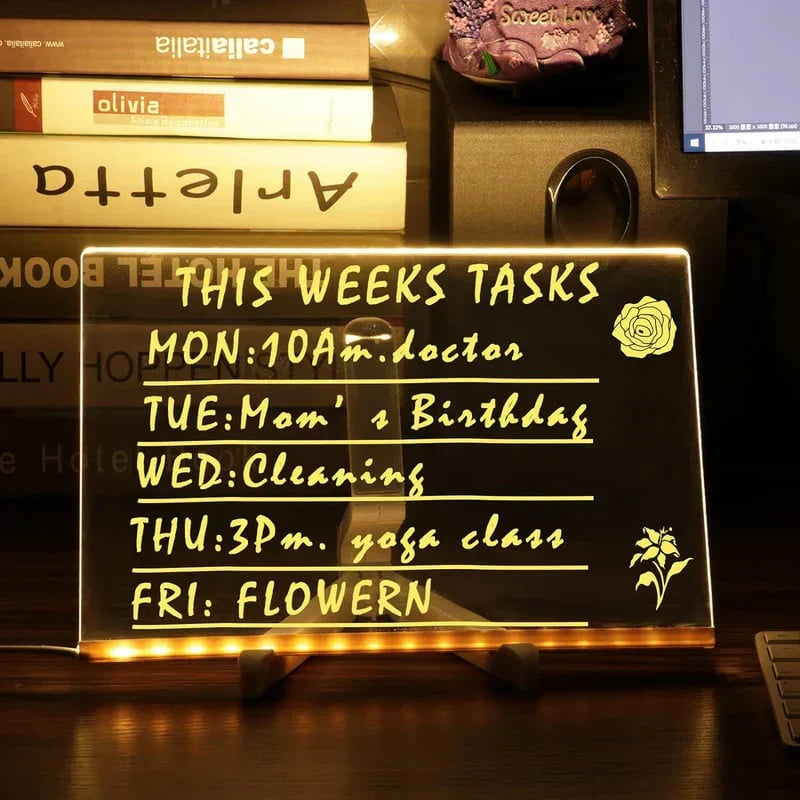 www.caliaitalia.com
caliaitalia
Sweet Love
olivia
home decoration
Arletta
THE HOTEL BOOK
THIS WEEKS TASKS
MON:10Am.doctor
TUE:Mom's Birthday
WED:Cleaning
THU:3Pm. yoga class
FRI: FLOWERN